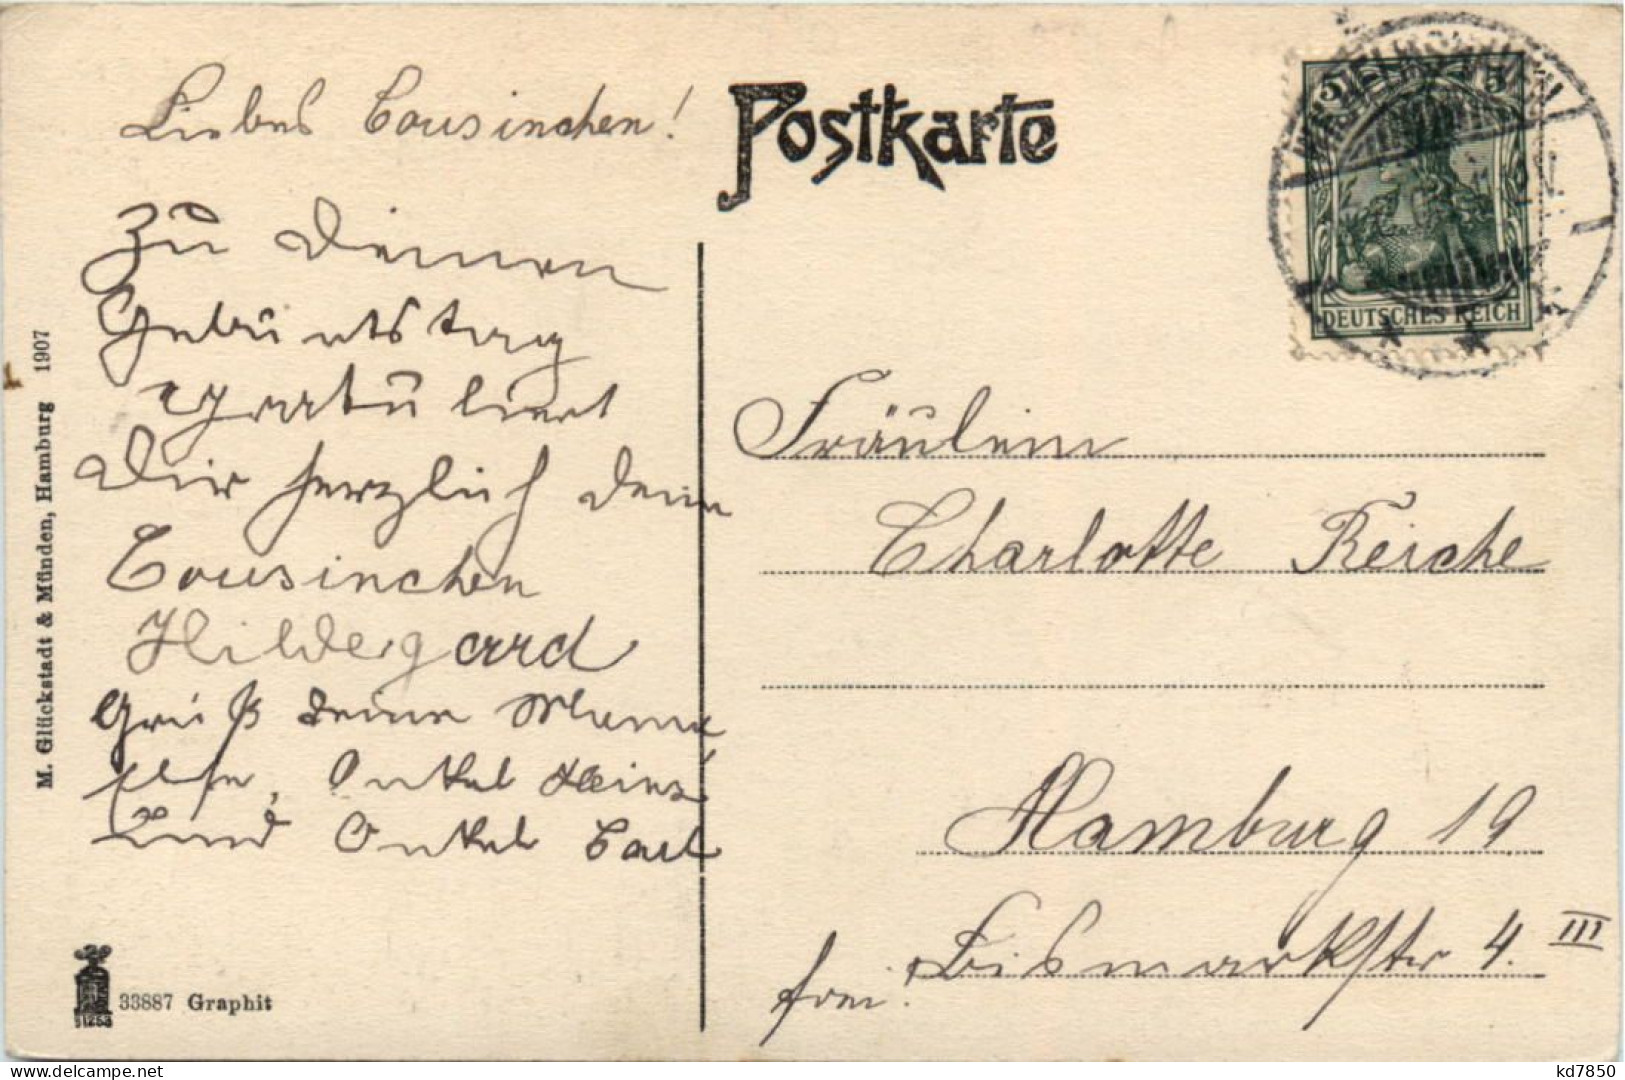 Postkarte
Liebes Cousinchen!
Zu Deinen
Geburtstag
gratuliert
Dir herzlich dein
Cousinchen
Hildegard
Grüß deine Mama
Onkel Heinz
und Onkel Carl
5 5
DEUTSCHES REICH
Fräulein
Charlotte Reiche
Hamburg 19
Bismarkstr 4. III
frei!
M. Glückstadt & Münden, Hamburg 1907
33887 Graphit
kd7850
delcampe.net